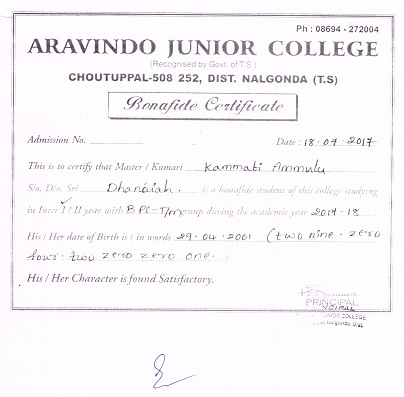 Ph : 08694 - 272004
ARAVINDO JUNIOR COLLEGE
(Recognised by Govt. of T.S.)
CHOUTUPPAL-508 252, DIST. NALGONDA (T.S)
Bonafide Certificate
Admission No. Date : 18.07.2017
This is to certify that Master / Kumari Kammati Ammulu
S/o. D/o. Sri Dhanaiah. is a bonafide student of this college studying
in Inter I / II year with BPC-T/m group during the academic year 2017-18
His / Her date of Birth is ( in words 29.04.2001 (two nine. zero
four. two zero zero one. )
His / Her Character is found Satisfactory.
PRINCIPAL
JUNIOR COLLEGE